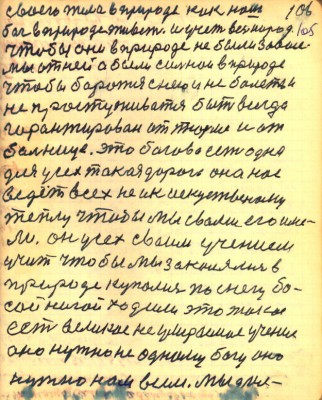 своего тела в природе как наш 106
бог в природе живет. и учет весь народ. 105
чтобы они в природе не были зависи-
мы от ней а были силной в природе
чтобы боротся с нею и не болеть и
не простуживатся быт всегда
гарантирован от
Это богова ест одна
для усех такая дорога она нас
ведёт всех не к искуственому
теплу чтобы мы своли его име-
ли. он усех своим учением
учит чтобы мы закалялис в
природе купалися по снегу бо-
сой ногой ходили это такое
ест великое не умираюшие учение
оно нужно не одному богу оно
нужно нам всем. мы для-